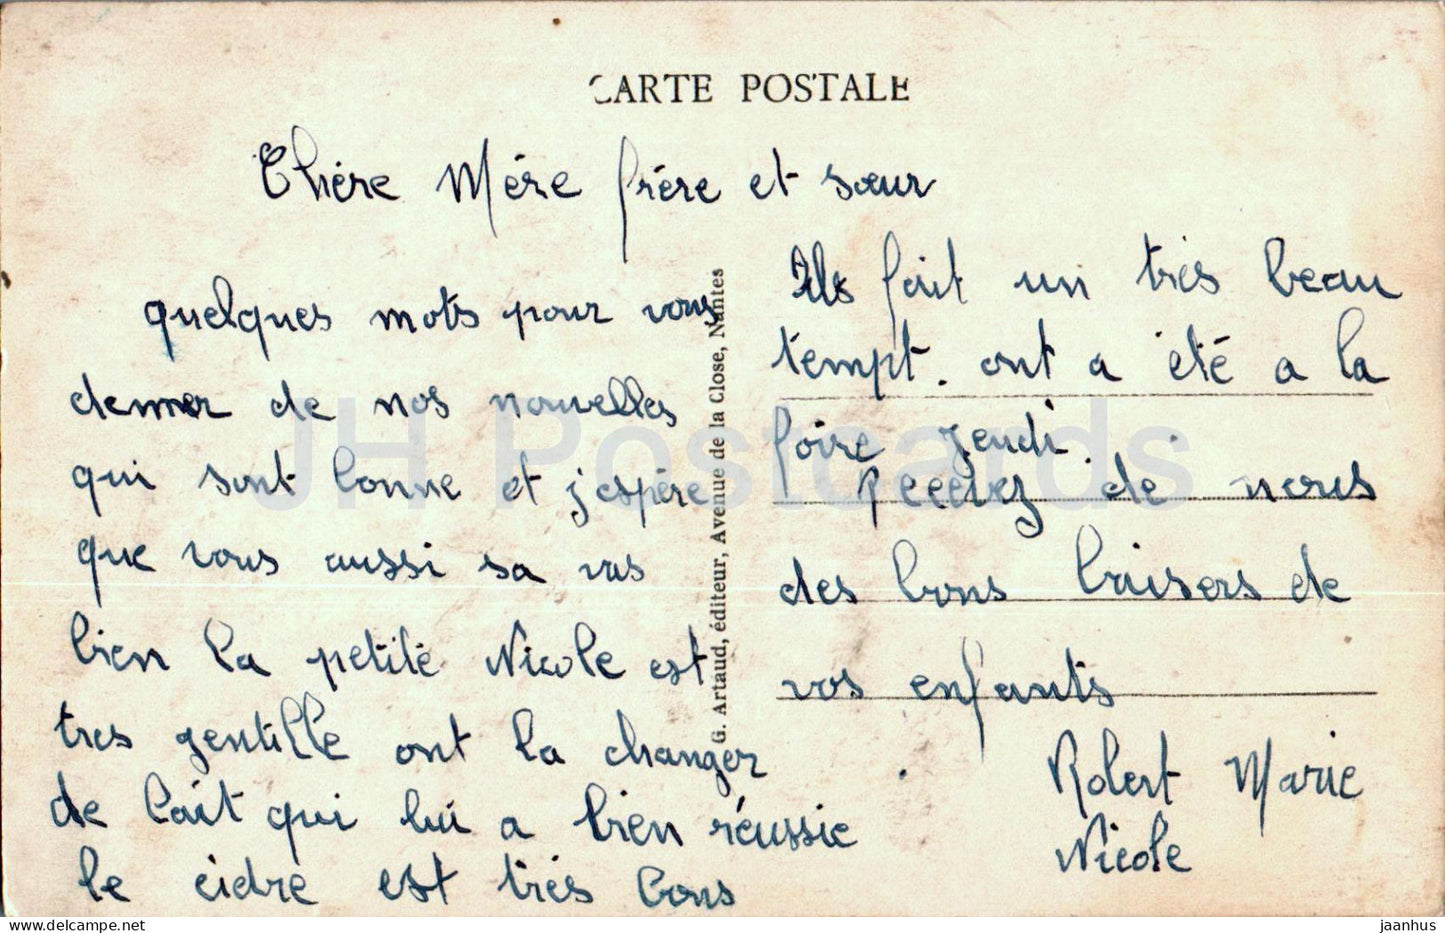 CARTE POSTALE
Chère Mère frère et sœur
quelques mots pour vous
denner de nos nouvelles
qui sont bonne et j'espère
que vous aussi sa vas
bien la petite Nicole est
tres gentille ont la changer
de lait qui lui a bien réussie
le cidre est très bons
G. Artaud, éditeur, Avenue de la Close, Nantes
Ils fait un très beau
tempt. ont a été a la
foire jeudi.
Recevez de nous
des bons baisers de
vos enfants
Robert Marie
Nicole
JH Postcards
jaanhus